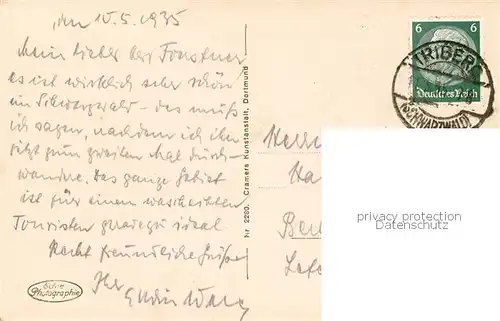 10.5.1935
Mein lieber Herr
es ist wirklich sehr schön
im Schwarzwald - das muß
ich sagen, nachdem ich ihn
jetzt zum zweiten Mal durch-
wandere. Das ganze Gebiet
ist für einen
Touristen geradezu ideal
Recht freundliche Grüße
Ihr
Echte
Photographie
Nr 2280. Cramers Kunstanstalt, Dortmund
6 6
Deutsches Reich
TRIBERG
(SCHWARZWALD)
Herrn
Ha
Ber
privacy protection
Datenschutz